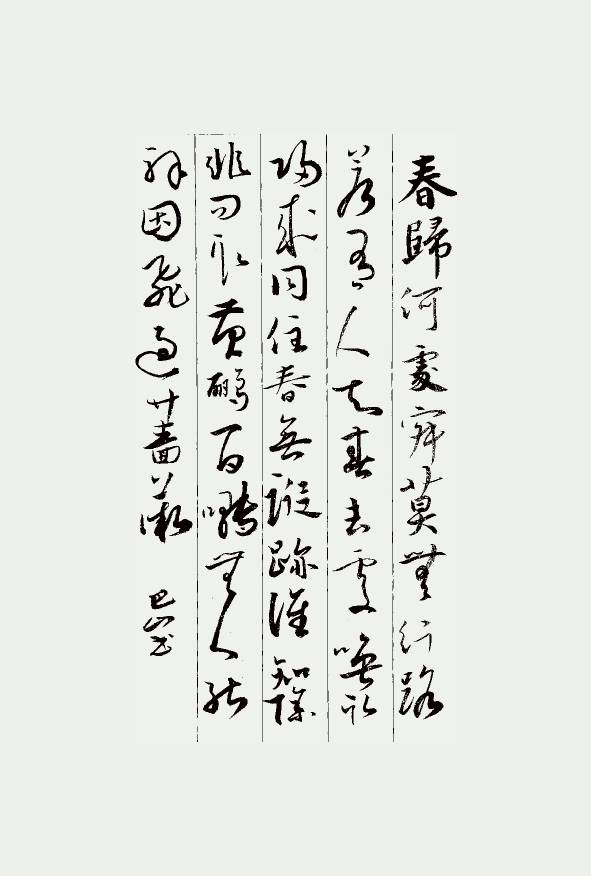 春歸何處寂寞無行路
若有人知春去處喚取
歸來同住春無蹤跡誰知除
非問取黃鸝百囀無人能
解因飛過薔薇
巴山